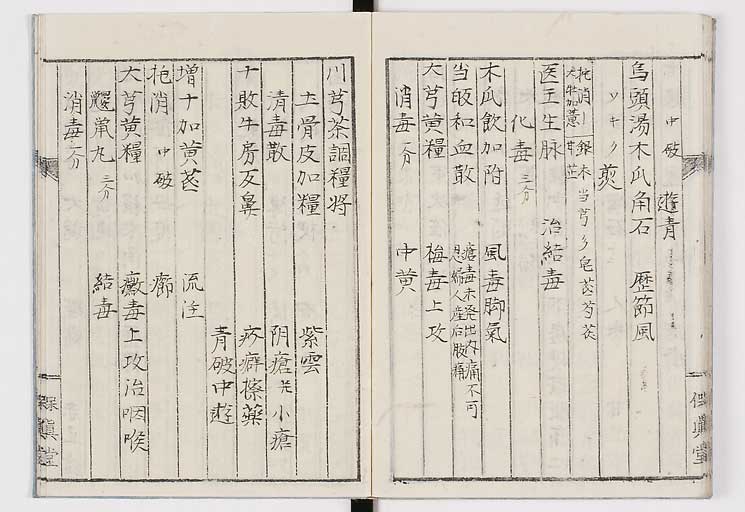 中破　遊青
烏頭湯木瓜角石　歴節風
ツキク煎
托消
大牛加薏
銀木当芎
医王生脉　治結毒
化毒三分
木瓜飲加附　風毒脚氣
当皈和血散　瘡毒未発出内痛不可
忍婦人産后肢痛
大芎黄糧　梅毒上攻
消毒一分　中黄
川芎茶調糧将
土骨皮加糧　紫雲
清毒散　阴瘡　小瘡
十敗牛房反鼻　疥癬擦薬
青破中遊
増十加黄芪　流注
托消中破　癤
大芎黄糧　黴毒上攻治咽喉
鼹鼡丸三分　結毒
消毒一分
保真堂
保真堂